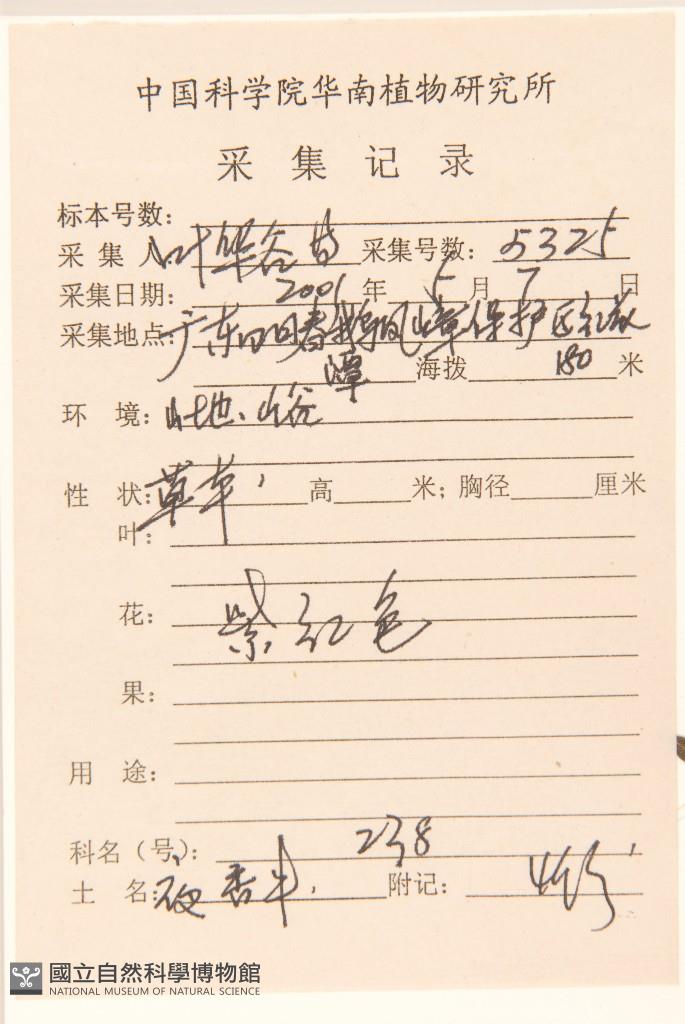 中国科学院华南植物研究所
采集记录
标本号数:
采集人: 叶华谷等 采集号数: 5325
采集日期: 2001年5月7日
采集地点: 广东阳春鹅凰嶂保护区
潭 海拔 180 米
环境: 山地、山谷
性状: 草本, 高 米; 胸径 厘米
叶:
花: 紫红色
果:
用途:
科名(号): 238
土名: 夜香牛, 附记:
國立自然科學博物館
NATIONAL MUSEUM OF NATURAL SCIENCE